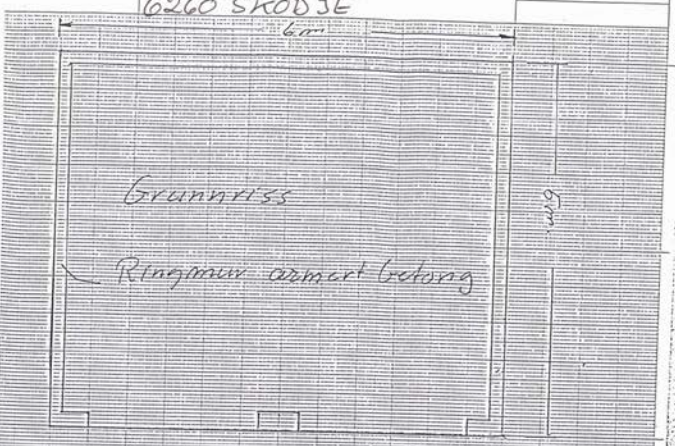 6260 SKODJE
6m
Grunnriss
Ringmur armert betong